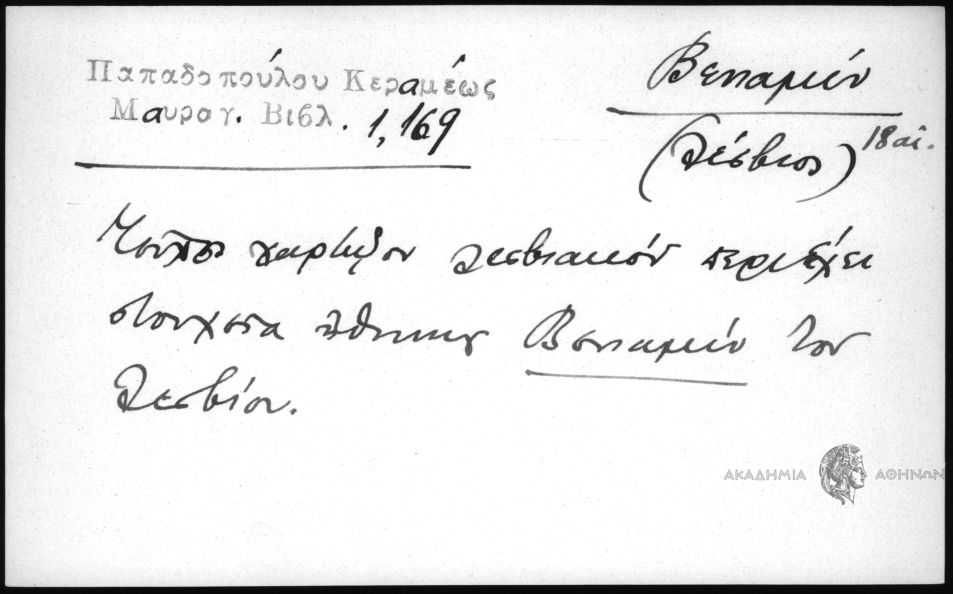 Παπαδοπούλου Κεραμέως
Μαυρογ. Βιβλ. 1,169
Βενιαμίν
(Λέσβιος) 18 αἰ.
χαρτῷον λεσβιακόν περιέχει
στοιχεῖα ἠθικῆς Βενιαμίν τοῦ
Λεσβίου.
ΑΚΑΔΗΜΙΑ ΑΘΗΝΩΝ